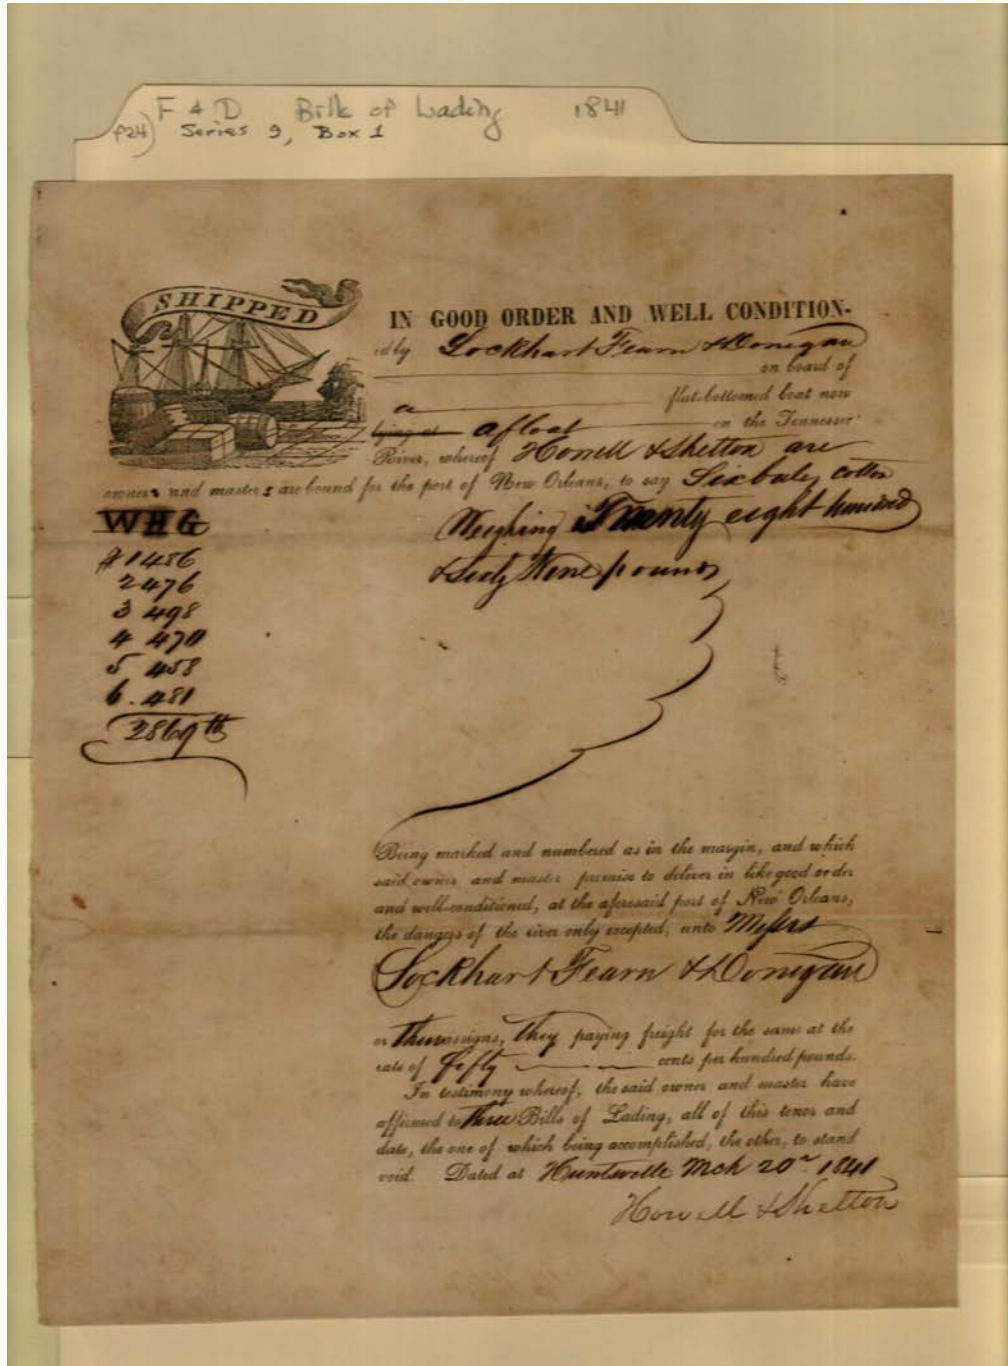 F & D Bills of Lading 1841
p24) Series 9, Box 1
SHIPPED
IN GOOD ORDER AND WELL CONDITION-
ed by Lockhart Fearn & Donegan
on board of
a flat-bottomed boat now
lying at afloat on the Tennessee
River, whereof Howell & Shelton are
owners and masters are bound for the port of New Orleans, to say Six bales cotton
WHG
Weighing Twenty eight hundred
& Sixty Nine pounds
# 1 486
2 476
3 498
4 470
5 458
6. 481
2869 lb
Being marked and numbered as in the margin, and which
said owner and master promise to deliver in like good order
and well-conditioned, at the aforesaid port of New Orleans,
the dangers of the river only excepted; unto Messrs
Lockhart Fearn & Donegan
or Their assigns, They paying freight for the same at the
rate of fifty cents per hundred pounds.
In testimony whereof, the said owner and master have
affirmed to three Bills of Lading, all of this tenor and
date, the one of which being accomplished, the other, to stand
void. Dated at Huntsville Mch 20th 1841
Howell & Shelton